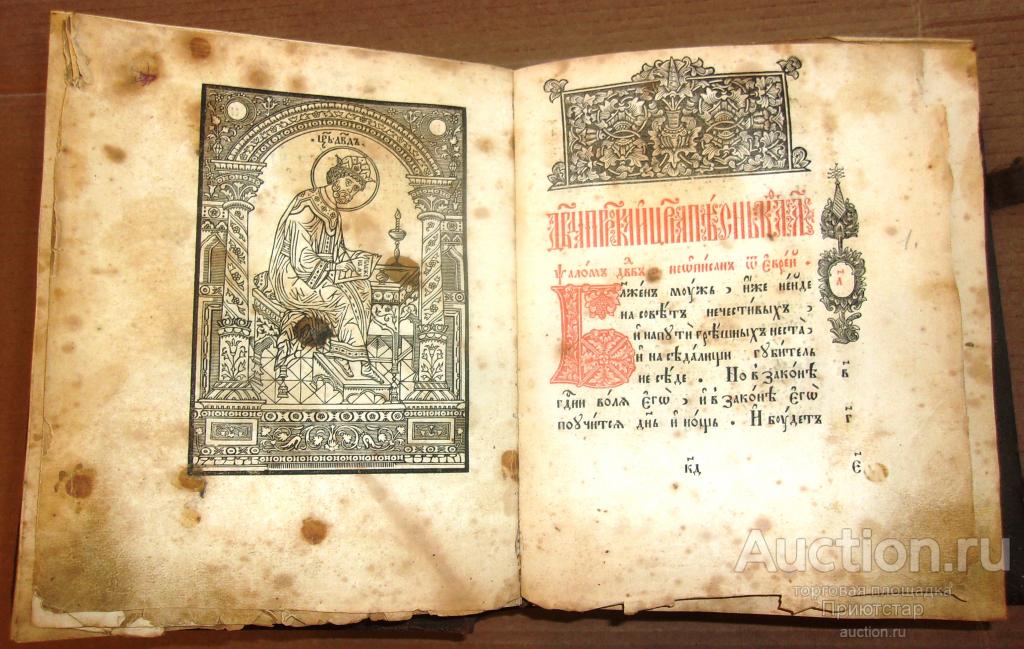 · ЦР҃Ь ДВ҃ДЪ ·
Ѱало́мъ дв҃дъ неѡписан ѿ еврей ·
Бл҃женъ моужь , иже неиде
на совѣтъ нечестивыхъ ,
и напути грѣшныхъ неста ,
и на сѣдалищи губитель
не сѣде . Но в законѣ
в҃
гд҃ни воля егѡ , и в законѣ егѡ
поучится дн҃ь и нощь . И боудетъ
г҃
к҃д
є҃
а҃
1.
Auction.ru
торговая площадка
Приютстар
auction.ru